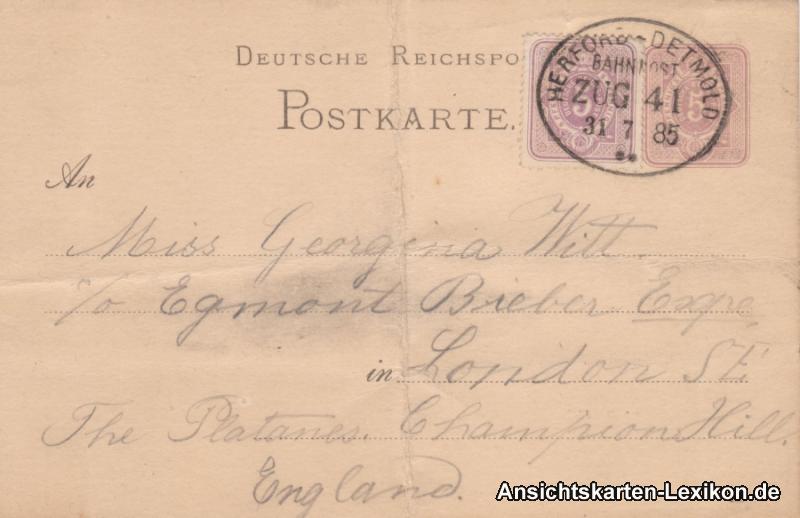 DEUTSCHE REICHSPO
POSTKARTE.
HERFORD-DETMOLD
BAHNPOST
ZUG 41
31 7 85
5
5
An
Miss Georgina Witt
c/o Egmont Bieber Esqre
in London SE.
The Platanes. Champion Hill.
England.
Ansichtskarten-Lexikon.de